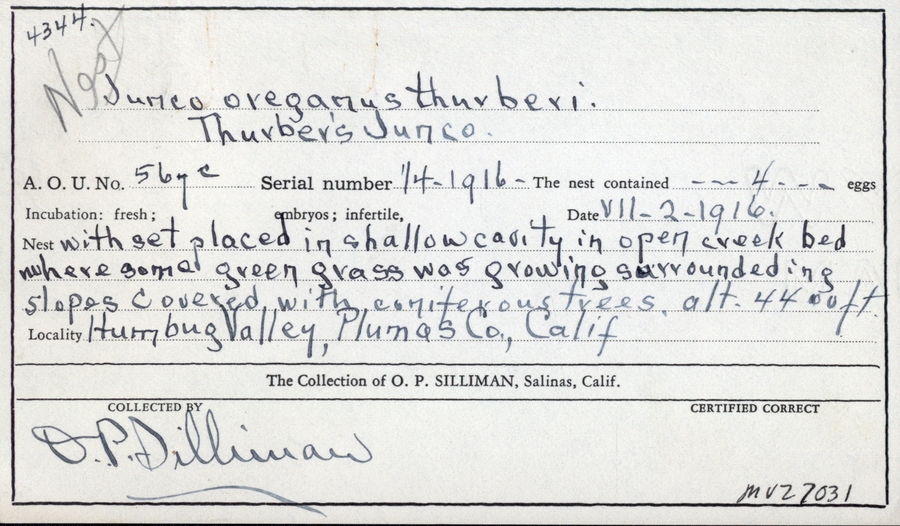 4344.
Nest
Junco oreganus thurberi.
Thurber's Junco.
A. O. U. No. 567c Serial number 1/4-1916- The nest contained ---4--- eggs
Incubation: fresh; embryos; infertile, Date VII-2-1916.
Nest with set placed in shallow cavity in open creek bed
where some green grass was growing surroundeding
slopes covered with coniferous trees. alt. 4400 ft.
Locality Humbug Valley, Plumas Co., Calif
The Collection of O. P. SILLIMAN, Salinas, Calif.
COLLECTED BY CERTIFIED CORRECT
O. P. Silliman
MVZ 7031